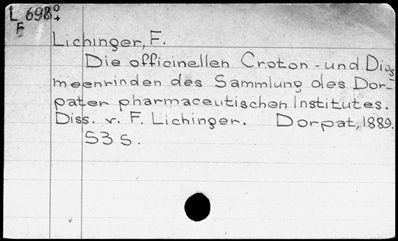 L 698°+
F
Lichinger, F.
Die officinellen Croton- und Dios
meenrinden des Sammlung des Dor-
pater pharmaceutischen Institutes.
Diss. v. F. Lichinger. Dorpat, 1889.
53 S.